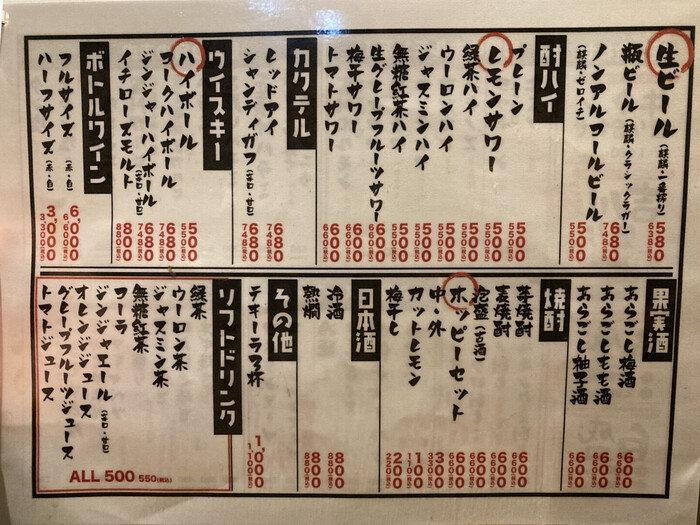 生ビール(麒麟・一番搾り) 580 638(税込)
瓶ビール(麒麟・クラシックラガー)
ノンアルコールビール 500 550(税込)
(麒麟・ゼロイチ)
酎ハイ
プレーン 500 550(税込)
レモンサワー 500 550(税込)
緑茶ハイ 500 550(税込)
ウーロンハイ 500 550(税込)
ジャスミンハイ 500 550(税込)
無糖紅茶ハイ 500 550(税込)
生グレープフルーツサワー 600 660(税込)
梅干サワー 600 660(税込)
トマトサワー 600 660(税込)
カクテル
レッドアイ 680 748(税込)
シャンディガフ(辛口・甘口) 680 748(税込)
ウイスキー
ハイボール 500 550(税込)
コークハイボール 680 748(税込)
ジンジャーハイボール(辛口・甘口) 680 748(税込)
イチローズモルト 800 880(税込)
ボトルワイン
フルサイズ(赤・白) 6,000 6,600(税込)
ハーフサイズ(赤・白) 3,000 3,300(税込)
果実酒
あらごし梅酒 600 660(税込)
あらごしもも酒 600 660(税込)
あらごし柚子酒 600 660(税込)
焼酎
芋焼酎 600 660(税込)
麦焼酎 600 660(税込)
泡盛(古酒) 600 660(税込)
ホッピーセット 600 660(税込)
中・外 300 330(税込)
カットレモン 100 110(税込)
梅干し 200 220(税込)
日本酒
冷酒 800 880(税込)
熱燗 800 880(税込)
その他
テキーラ3杯 1,000 1,100(税込)
ソフトドリンク
緑茶
ウーロン茶
ジャスミン茶
無糖紅茶
コーラ
ジンジャエール(辛口・甘口)
オレンジジュース
グレープフルーツジュース
トマトジュース
ALL 500 550(税込)